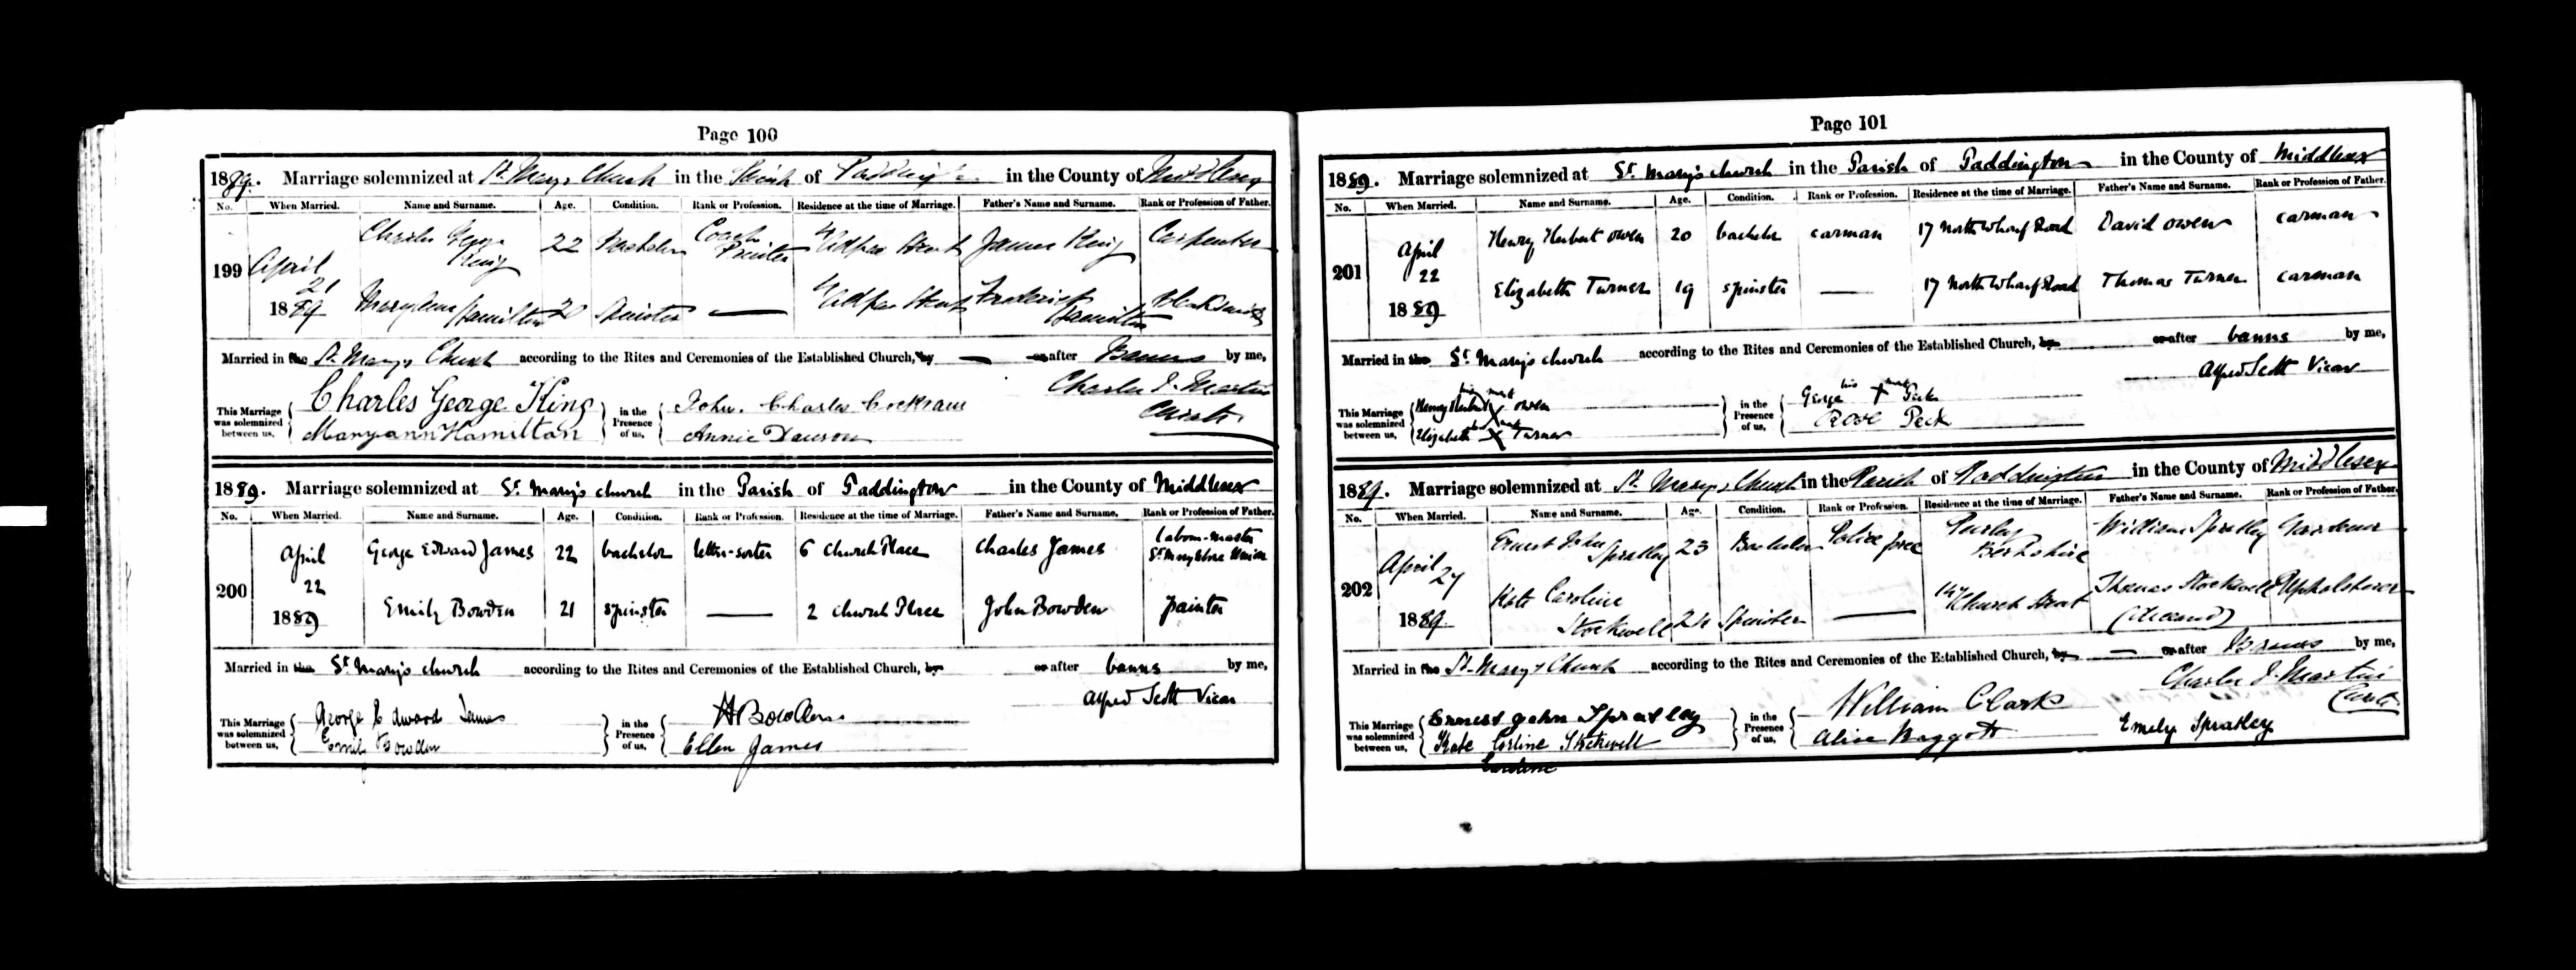 Page 100
1889. Marriage solemnized at St. Mary's Church in the Parish of Paddington in the County of Middlesex
No. When Married. Name and Surname. Age. Condition. Rank or Profession. Residence at the time of Marriage. Father's Name and Surname. Rank or Profession of Father.
199 April 21 1889
Charles George King 22 Bachelor Coach Painter Street James King Carpenter
Maryann Hamilton 20 Spinster — Street Frederick Hamilton Blacksmith
Married in the St. Mary's Church according to the Rites and Ceremonies of the Established Church, by — or after Banns by me,
Charles J. Martin
Curate
This Marriage was solemnized between us, Charles George King in the Presence of us, John Charles Cockrane
Maryann Hamilton Annie Dawson
1889. Marriage solemnized at St. Mary's church in the Parish of Paddington in the County of Middlesex
No. When Married. Name and Surname. Age. Condition. Rank or Profession. Residence at the time of Marriage. Father's Name and Surname. Rank or Profession of Father.
200 April 22 1889
George Edward James 22 bachelor letter-sorter 6 Church Place Charles James labour-master St. Marylebone Union
Emily Bowden 21 spinster — 2 Church Place John Bowden painter
Married in the St. Mary's church according to the Rites and Ceremonies of the Established Church, by or after banns by me,
Alfred Scott Vicar
This Marriage was solemnized between us, George Edward James in the Presence of us, H Bowden
Emily Bowden Ellen James
Page 101
1889. Marriage solemnized at St. Mary's church in the Parish of Paddington in the County of Middlesex
No. When Married. Name and Surname. Age. Condition. Rank or Profession. Residence at the time of Marriage. Father's Name and Surname. Rank or Profession of Father.
201 April 22 1889
Henry Herbert Owen 20 bachelor carman 17 North Wharf Road David Owen carman
Elizabeth Turner 19 spinster — 17 North Wharf Road Thomas Turner carman
Married in the St. Mary's church according to the Rites and Ceremonies of the Established Church, by or after banns by me,
Alfred Scott Vicar
This Marriage was solemnized between us, Henry Herbert his X mark Owen in the Presence of us, George his X mark Peck
Elizabeth her X mark Turner Rose Peck
1889. Marriage solemnized at St. Mary's Church in the Parish of Paddington in the County of Middlesex
No. When Married. Name and Surname. Age. Condition. Rank or Profession. Residence at the time of Marriage. Father's Name and Surname. Rank or Profession of Father.
202 April 27 1889
Ernest John Spratley 23 Bachelor Police force Purley Berkshire William Spratley Gardener
Kate Caroline Stockwell 24 Spinster — 147 Church Street Thomas Stockwell (deceased) Upholsterer
Married in the St. Mary's Church according to the Rites and Ceremonies of the Established Church, by — or after Banns by me,
Charles J. Martin
Curate
This Marriage was solemnized between us, Ernest John Spratley in the Presence of us, William Clark
Kate Corline Stockwell Alice Baggott Emely Spratley
Caroline